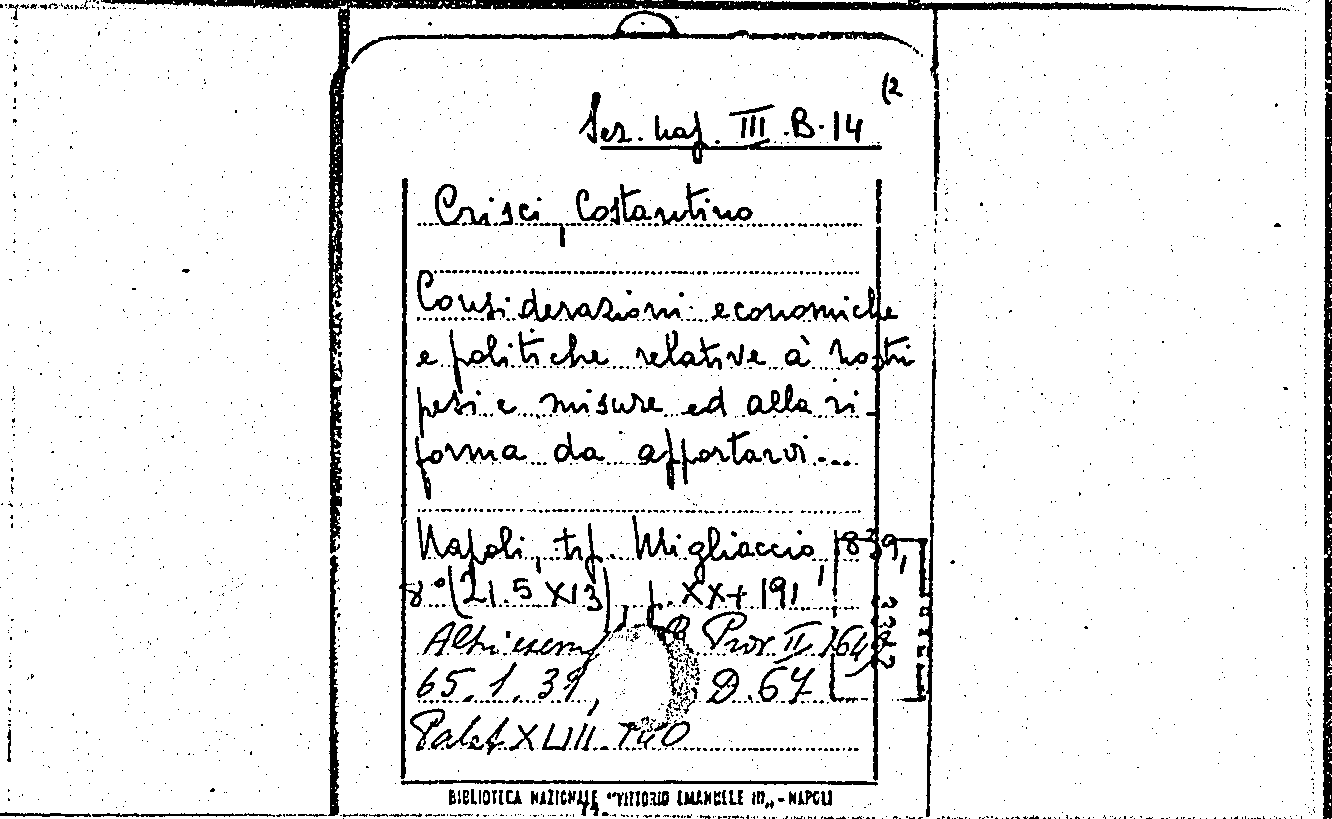 (2
Sez. Nap. III. B. 14
Crisci, Costantino
Considerazioni economiche
e politiche relative à nostri
pesi e misure ed alla ri-
forma da apportarvi...
Napoli, tip. Migliaccio, 1839,
8° (21.5 X 13), p. XX + 191
Altri esem Prov. II
65. 1. 39, D. 67
Palat. XLIII.
BIBLIOTECA NAZIONALE "VITTORIO EMANUELE III" - NAPOLI